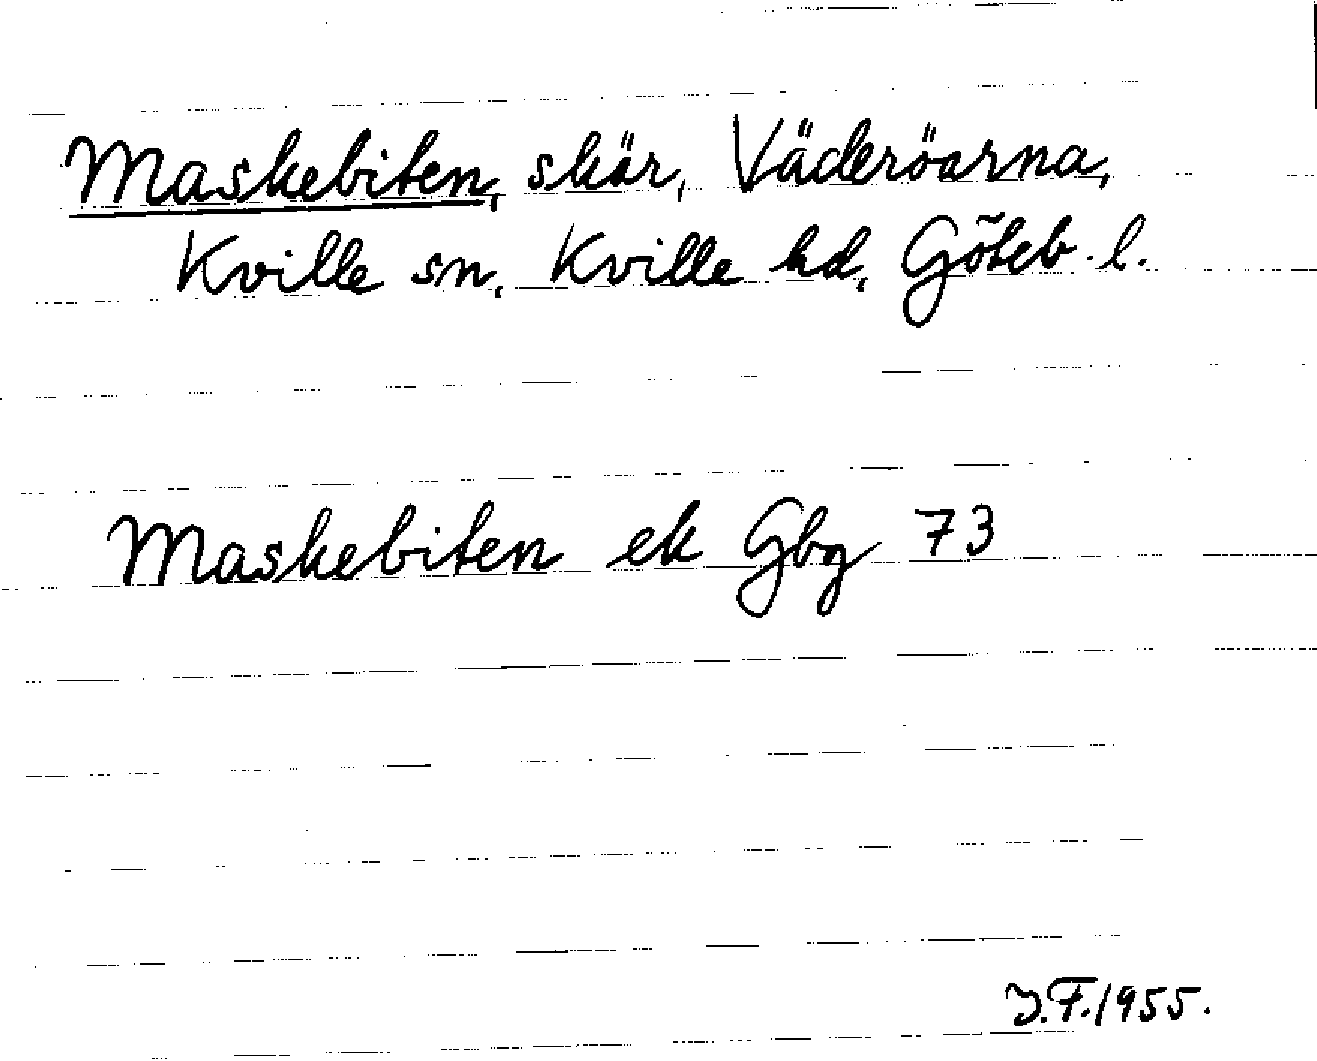 Maskebiten, skär, Väderöarna,
Kville sn, Kville hd, Göteb. l.
Maskebiten ek Gbg 73
J.F. 1955.